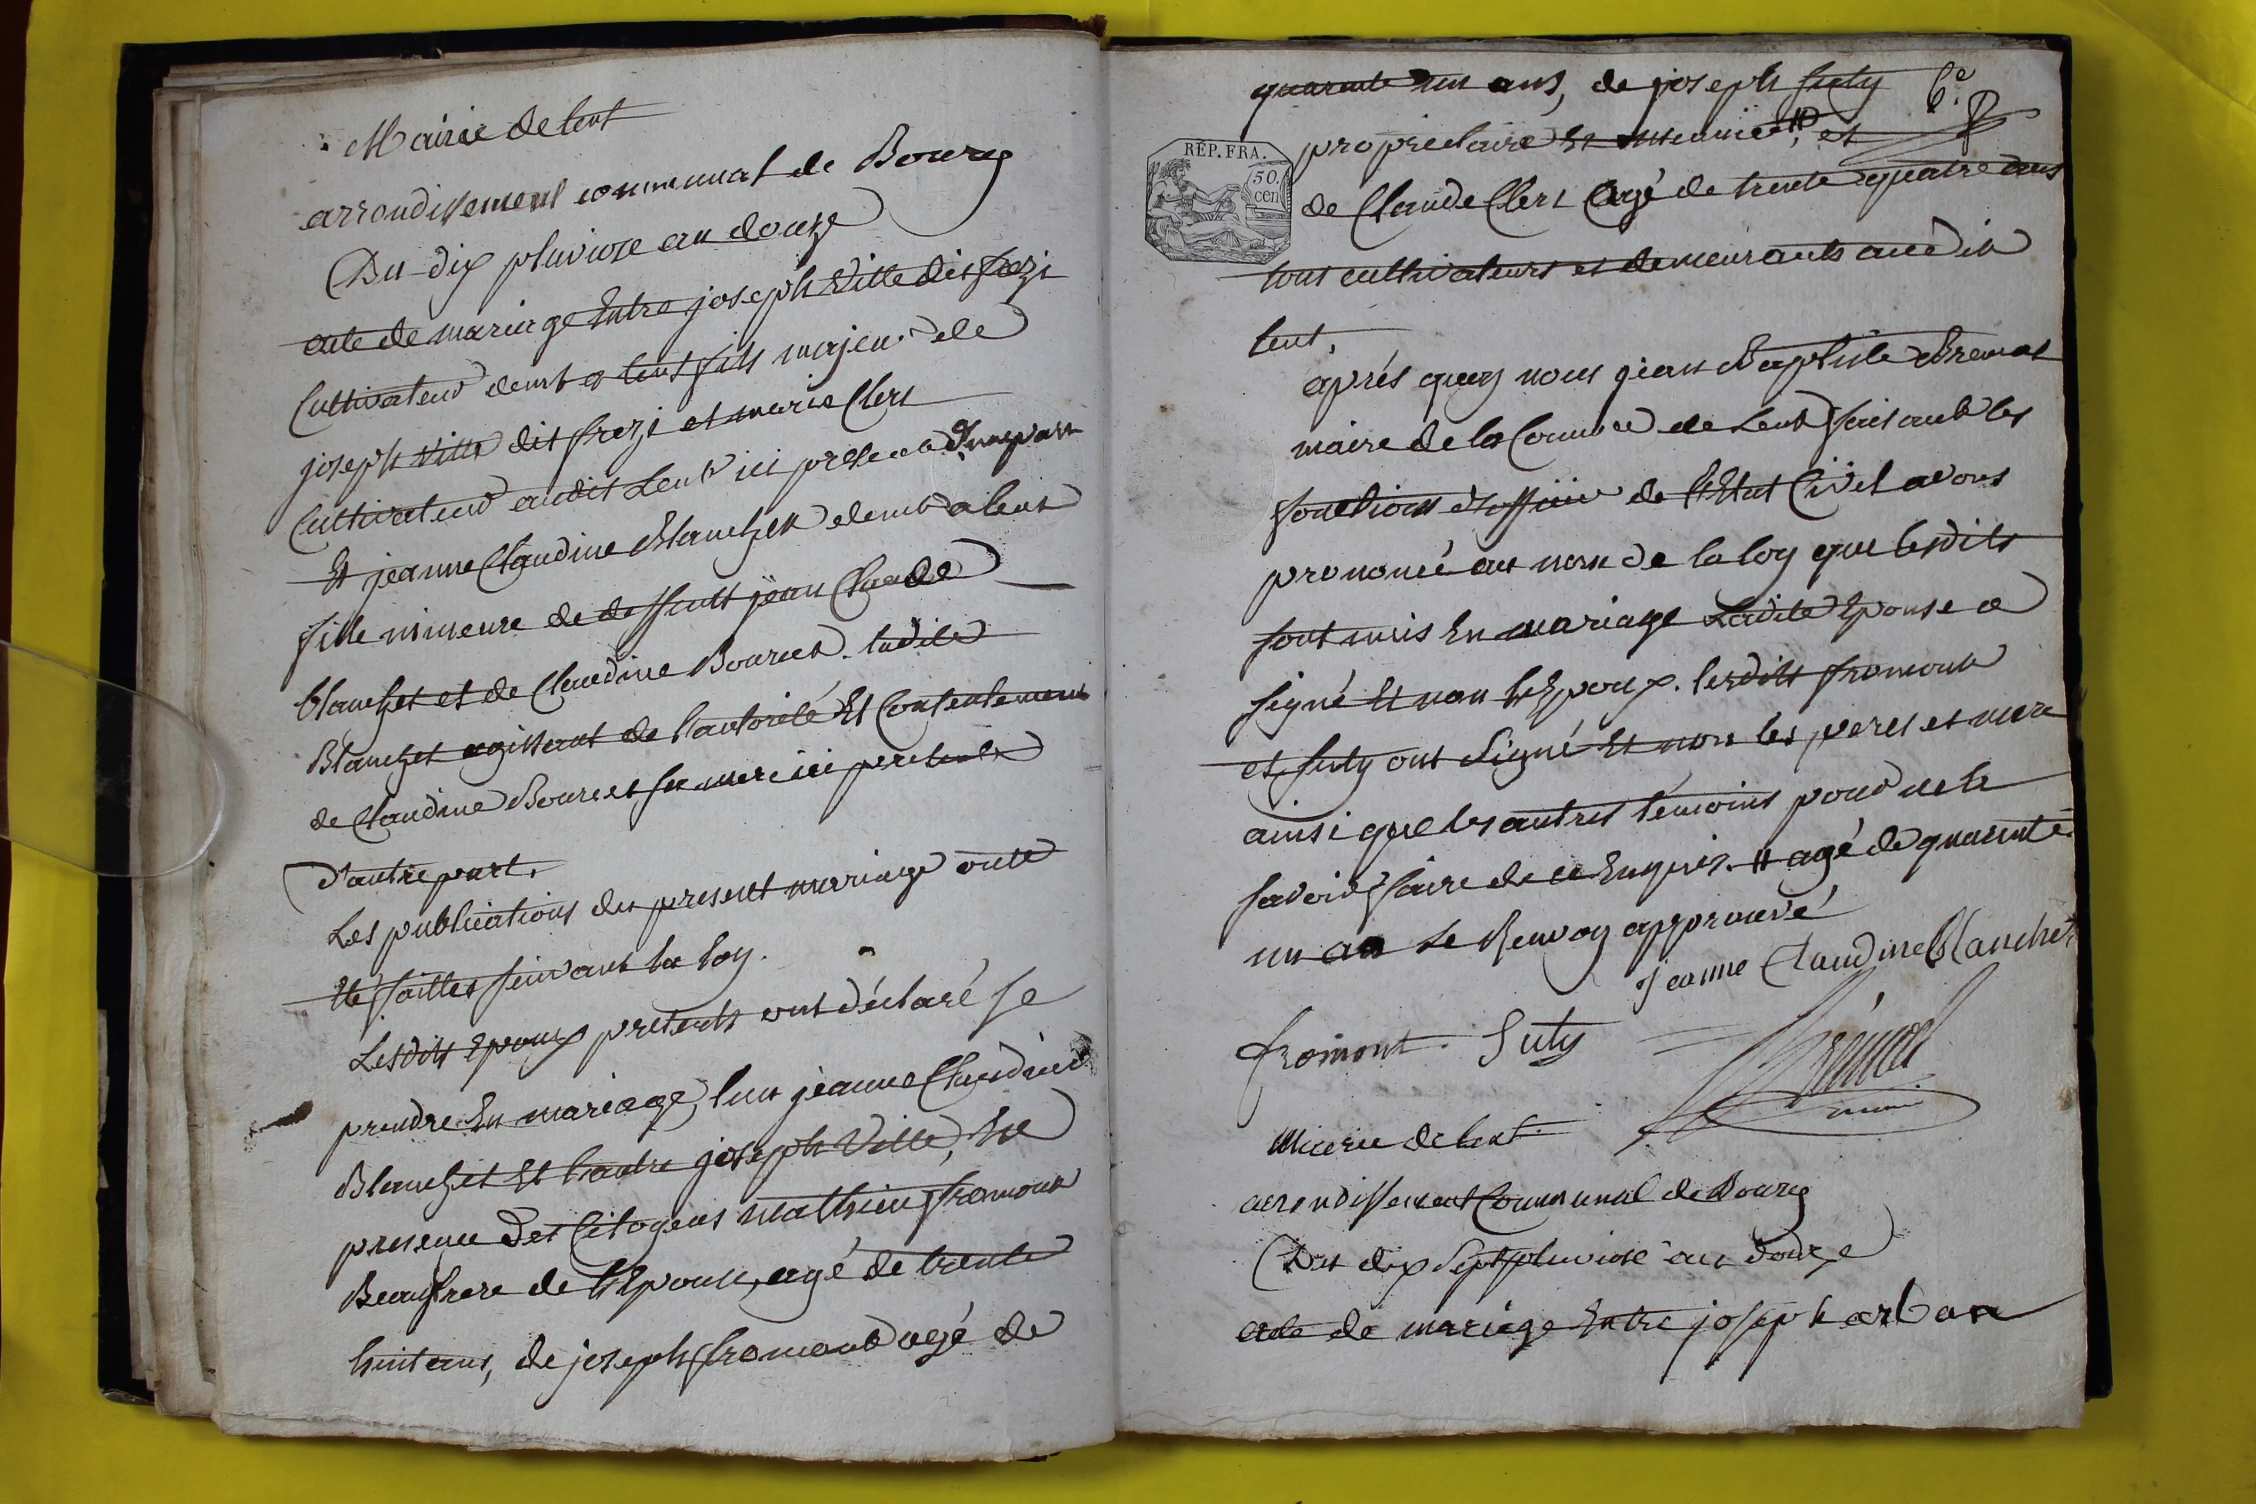 Mairie de lent
arrondissement communal de Bourg
Du dix pluviose an douze
acte de mariage Entre joseph Ville dit frezi
Cultivateur demt a lent fils majeur de
joseph Ville dit frezi et marie Clerc
Cultivateur audit Lent ici present d'une part
Et jeanne Claudine Blanchet demt a lent
fille mineure de deffunt jean Claude
blanchet et de Claudine Bourcet. ladite
Blanchet agissant de l'autorité Et Consentement
de Claudine Bourcet sa mere ici presente
d'autre part.
Les publications du present mariage onte
Eté faittes suivant la loy.
Lesdits Epoux presents ont déclaré se
prendre En mariage, l'un jeanne Claudine
Blanchet Et l'autre joseph Ville, En
presence Des Citoyens mathieu fromont
Beaufrere de l'Epouse, agé de trente
huit ans, de joseph fromont agé de
quarante un ans, de joseph futy
6.e
proprietaire Et , et
REP. FRA.
50.
cen
de Claude Clerc agé de trente quatre ans
tous cultivateurs et demeurants audit
lent.
après quoy nous jean Baptiste Bremal
maire de la Commune de Lent faisant les
fonctions d'officier de l'Etat Civil avons
prononcé au nom de la loy que lesdits
sont unis En mariage Ladite Epouse a
signé Et non l'Epoux. lesdits fromont
et futy ont signé Et non les peres et mere
ainsi que les autres témoins pour ne le
savoir faire de ce Enquis. # agé de quarente
un an le Renvoy approuvé
jeanne Claudine Blanchet
fromont. futy
maire
Mairie de lent.
arrondissement Communal de Bourg
Du dix sept pluviose an douze
acte de mariage Entre joseph arban